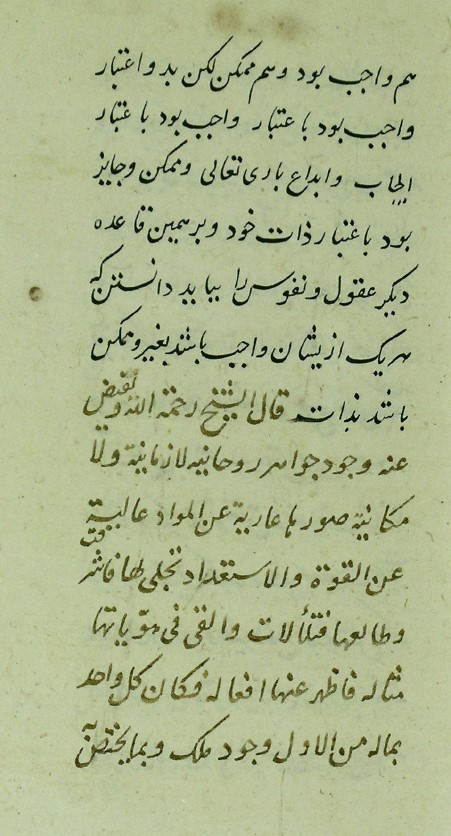 هم واجب بود و هم ممکن لکن بدو اعتبار
واجب بود باعتبار واجب بود باعتبار
ایجاب و ابداع باری تعالی و ممکن و جایز
بود باعتبار ذات خود و برهمین قاعده
دیگر عقول و نفوس را بباید دانستن که
هریک ازیشان واجب باشد بغیر و ممکن
باشد بذات قال الشیخ رحمة الله و یفیض
عنه وجود جواهر روحانیه لا زمانیة ولا
مکانیة صورها عاریة عن المواد عالیة
عن القوة والاستعداد تجلی لها فاشرقت
وطالعها فتلألات والقی فی هویاتها
مثاله فاظهر عنها افعاله فکان کل واحد
بماله من الاول وجود ملک وبما یختص به